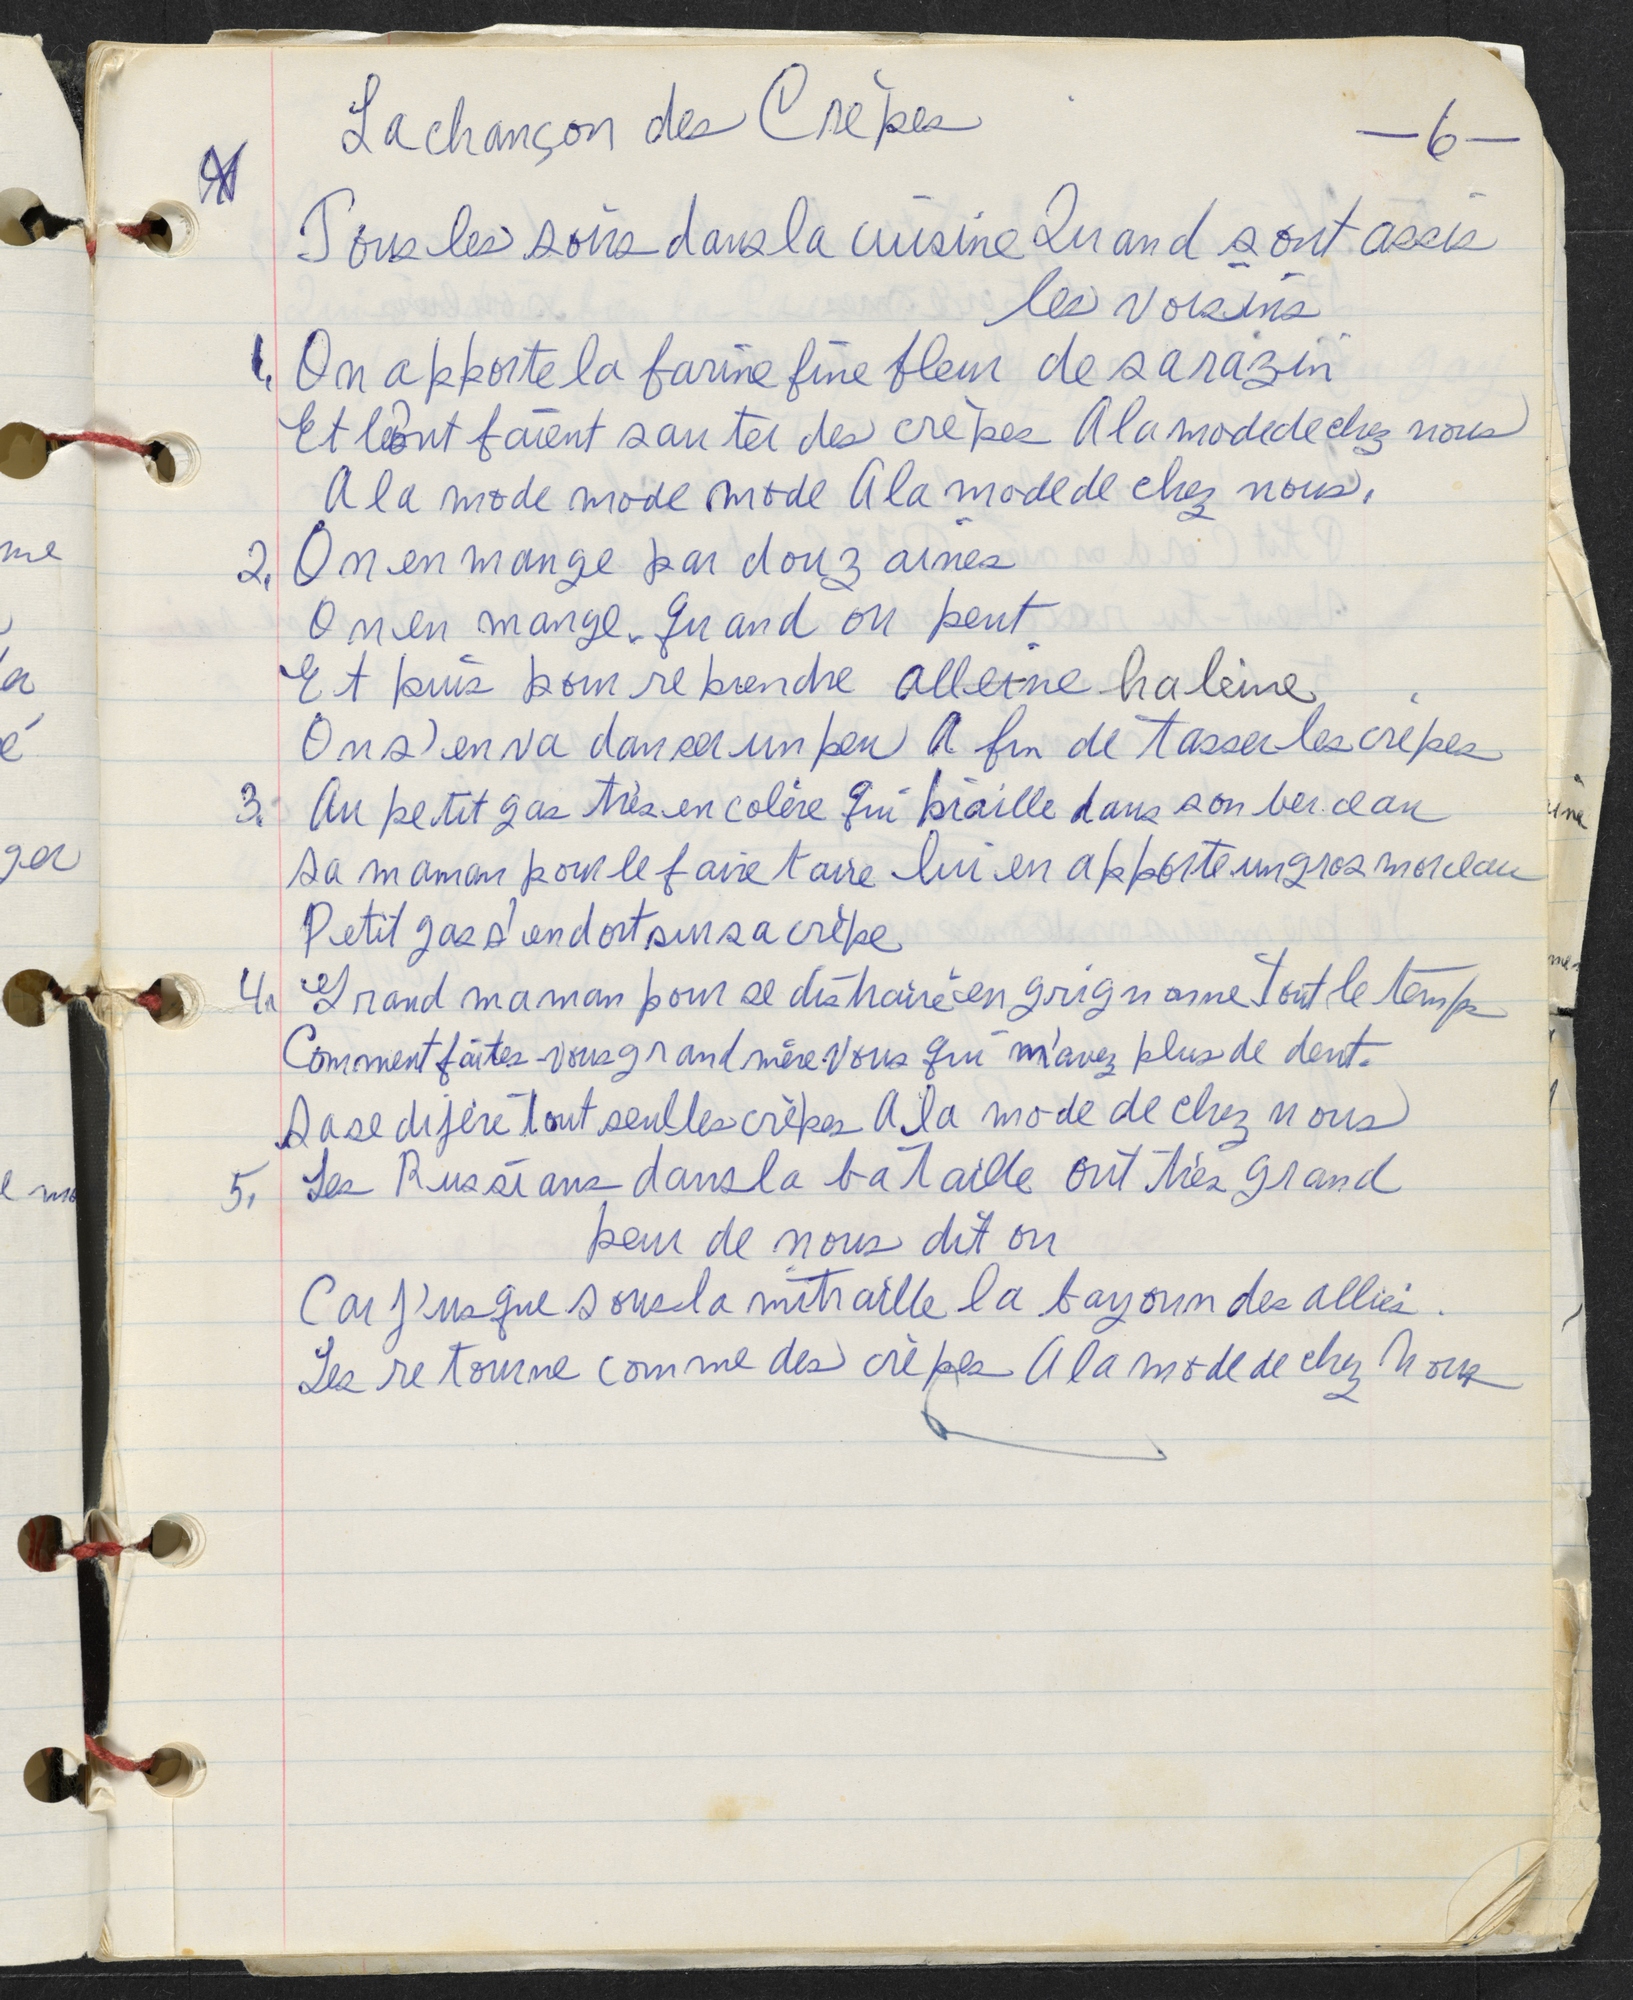 La chançon des Crèpes
—6—
Tous les soirs dans la cuisine Quand sont assis
les voisins
1. On apporte la farine fine fleur de sarazin
Et font sauter des crèpes A la mode de chez nous
A la mode mode mode A la mode de chez nous.
2. On en mange par douzaines
On en mange. quand on peut
Et puis pour reprendre alleine haleine
On s'en va danser un peu A fin de tasser les crèpes
3. Au petit gas très en colère qui piaille dans son berceau
sa maman pour le faire taire lui en apporte un gros morceau
Petit gas s'endort sur sa crèpe
4. Grand maman pour se distraire en grignonne tout le temps
Comment faites-vous grand mère vous qui n'avez plus de dent.
Sa se dijère tout seul les crèpes A la mode de chez nous
5. Les Russians dans la bataille ont très grand
peur de nous dit on
Car j'usque sous la mitraille la bayoun des alliés.
Les retourne comme des crèpes A la mode de chez nous
me
é
ger